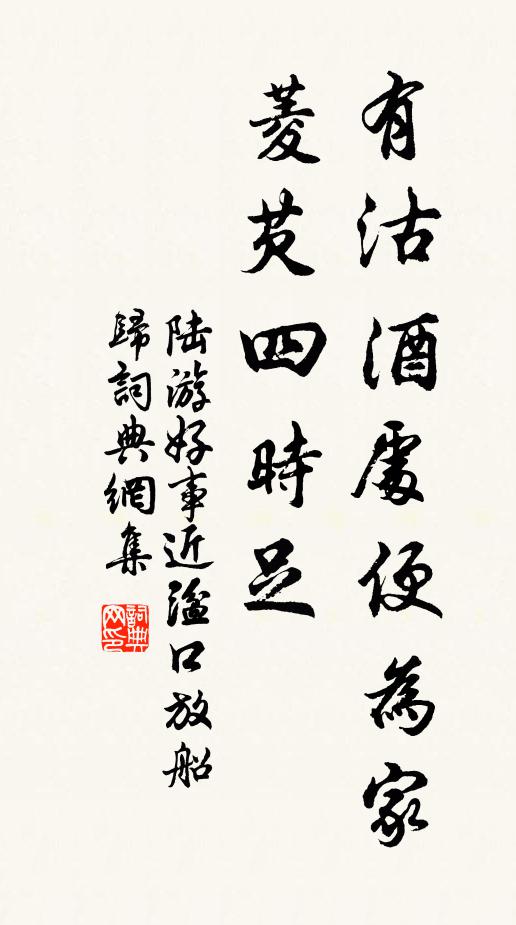 有沽酒處便為家
菱芡四時足
陆游好事近湓口放船
歸詞典網集
詞典网印